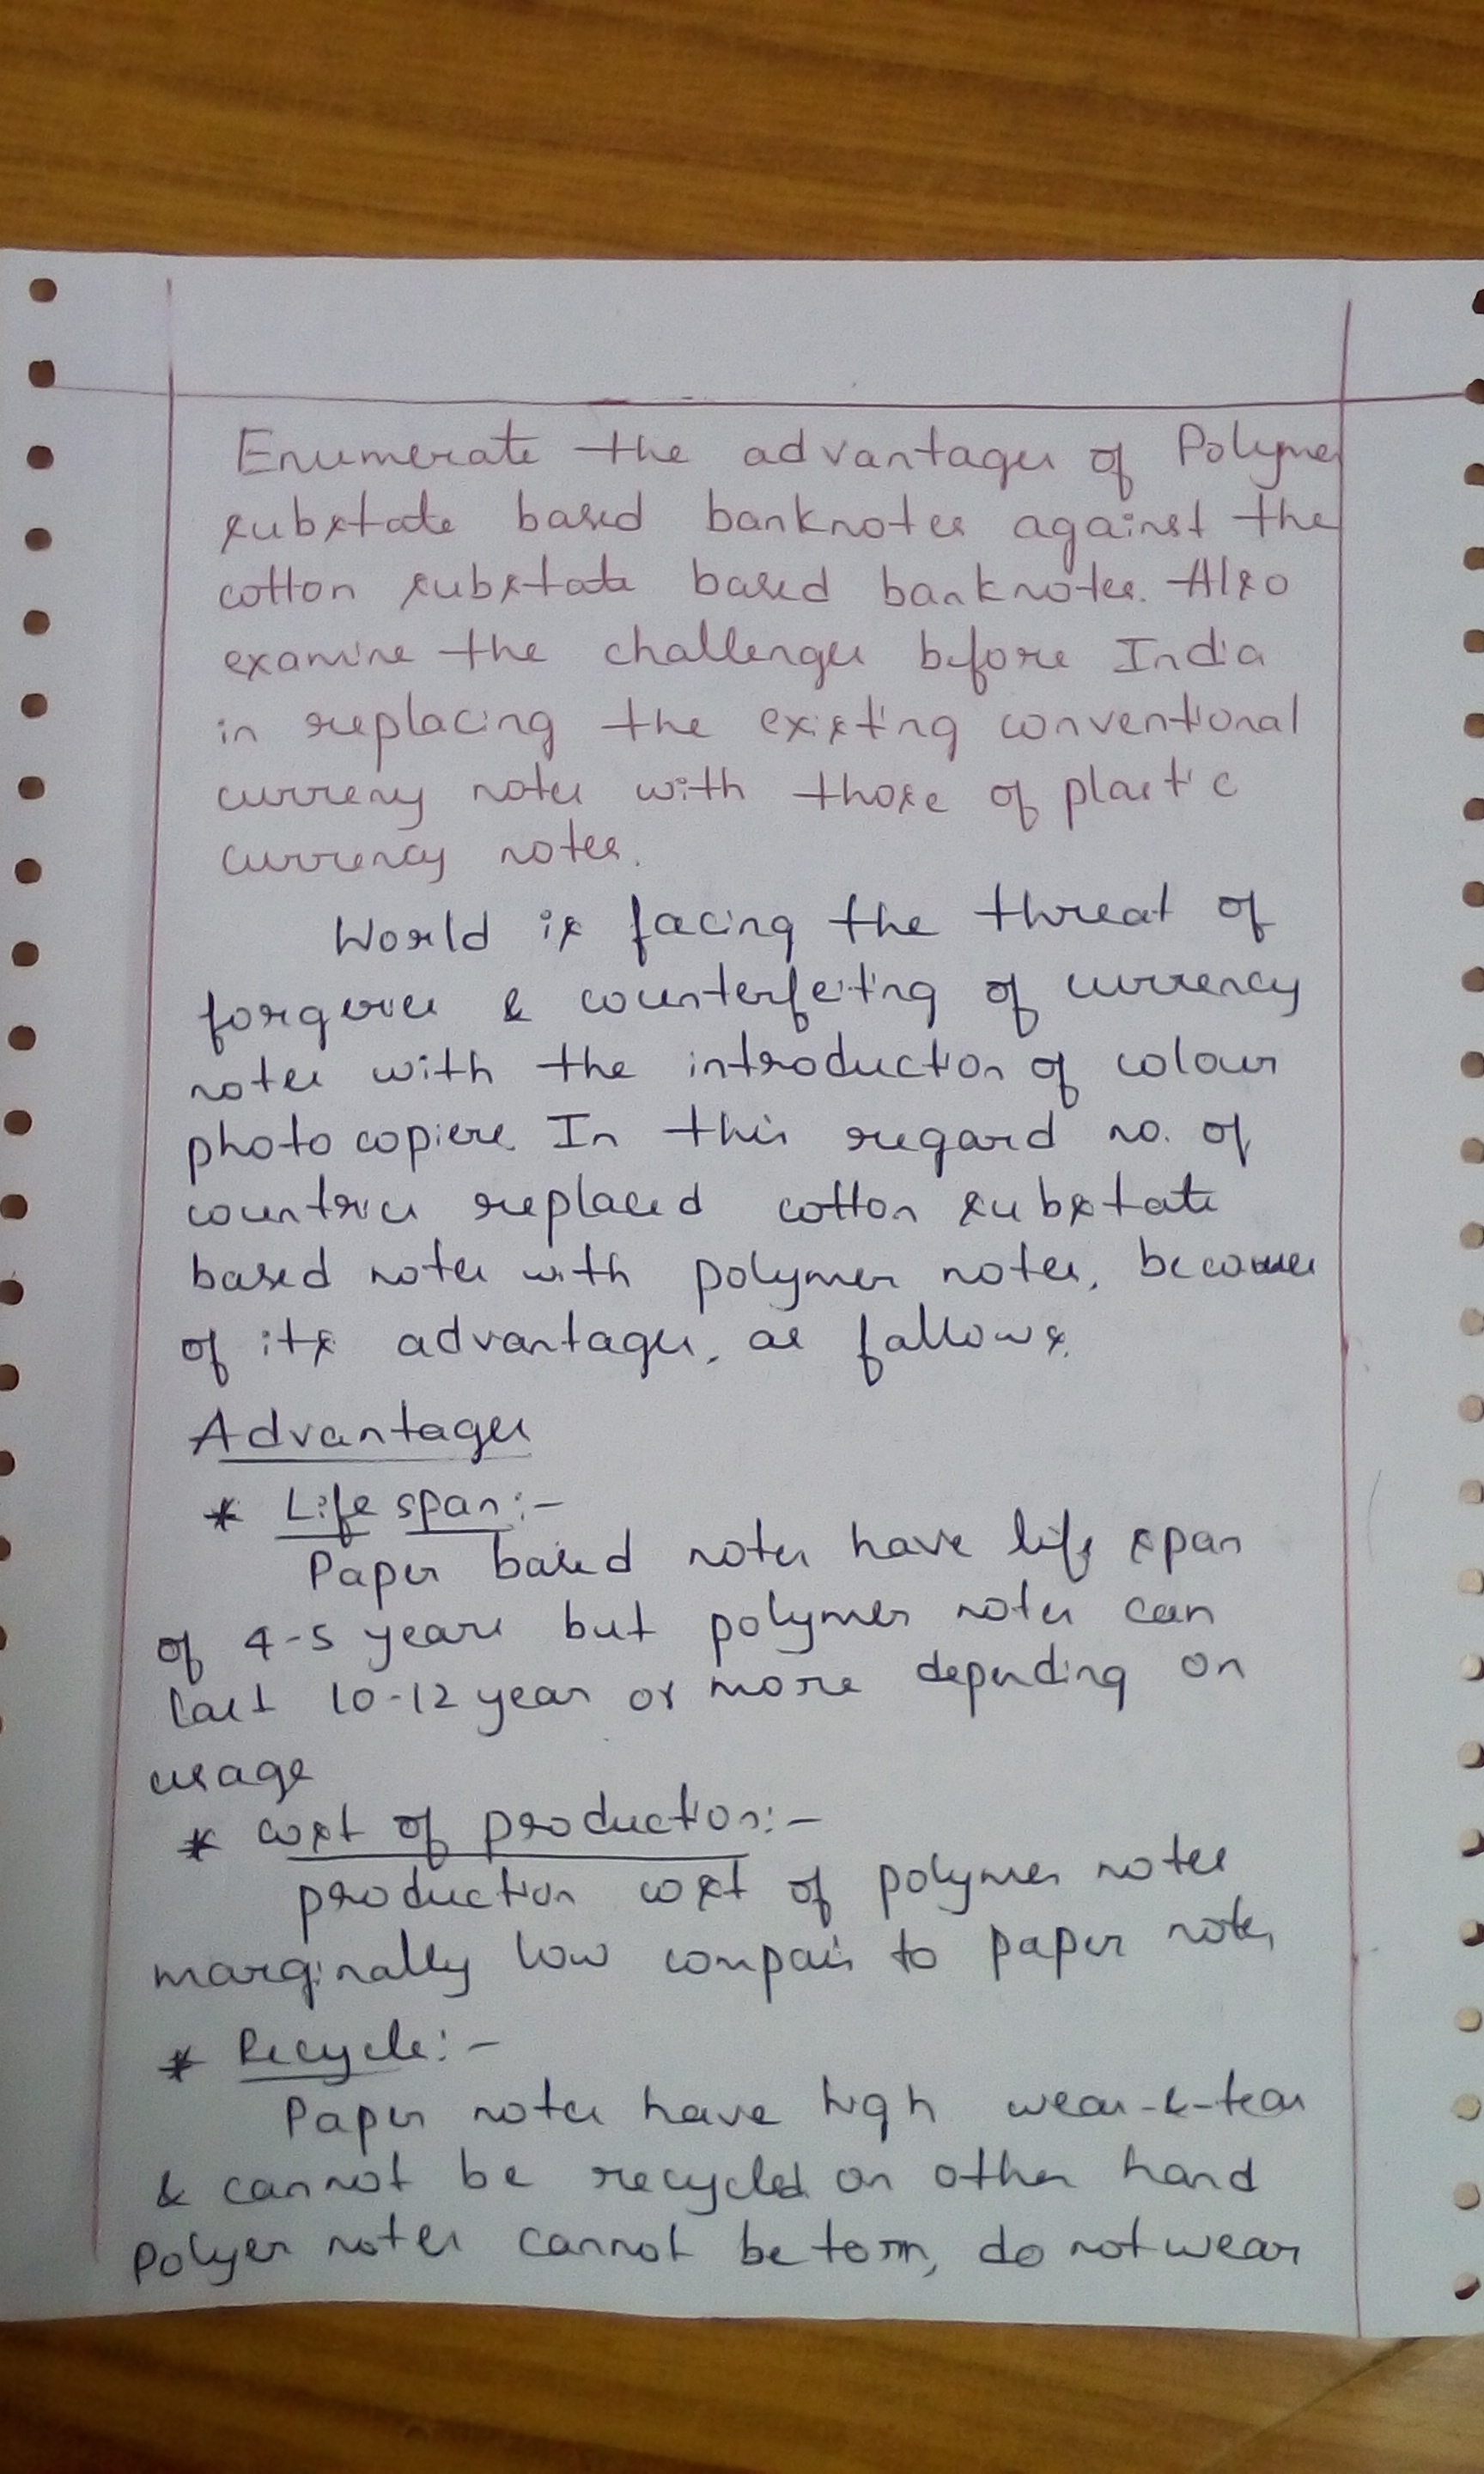 Enumerate the advantages of Polymer
substate based banknotes against the
cotton substate based banknotes. Also
examine the challenges before India
in replacing the existing conventional
curreny notes with those of plastic
currency notes.
World is facing the threat of
forgeries & counterfeiting of currency
notes with the introduction of colour
photo copiers. In this regard no. of
countries replaced cotton substate
based notes with polymer notes, because
of its advantages, as fallows.
Advantages
* Life span:-
Paper based notes have life span
of 4-5 years but polymer notes can
last 10-12 year or more depending on
usage
* cost of production:-
production cost of polymer notes
marginally low compair to paper notes
* Recycle:-
Paper notes have high wear-&-tear
& cannot be recycled on other hand
Polyer notes cannot be torn, do not wear